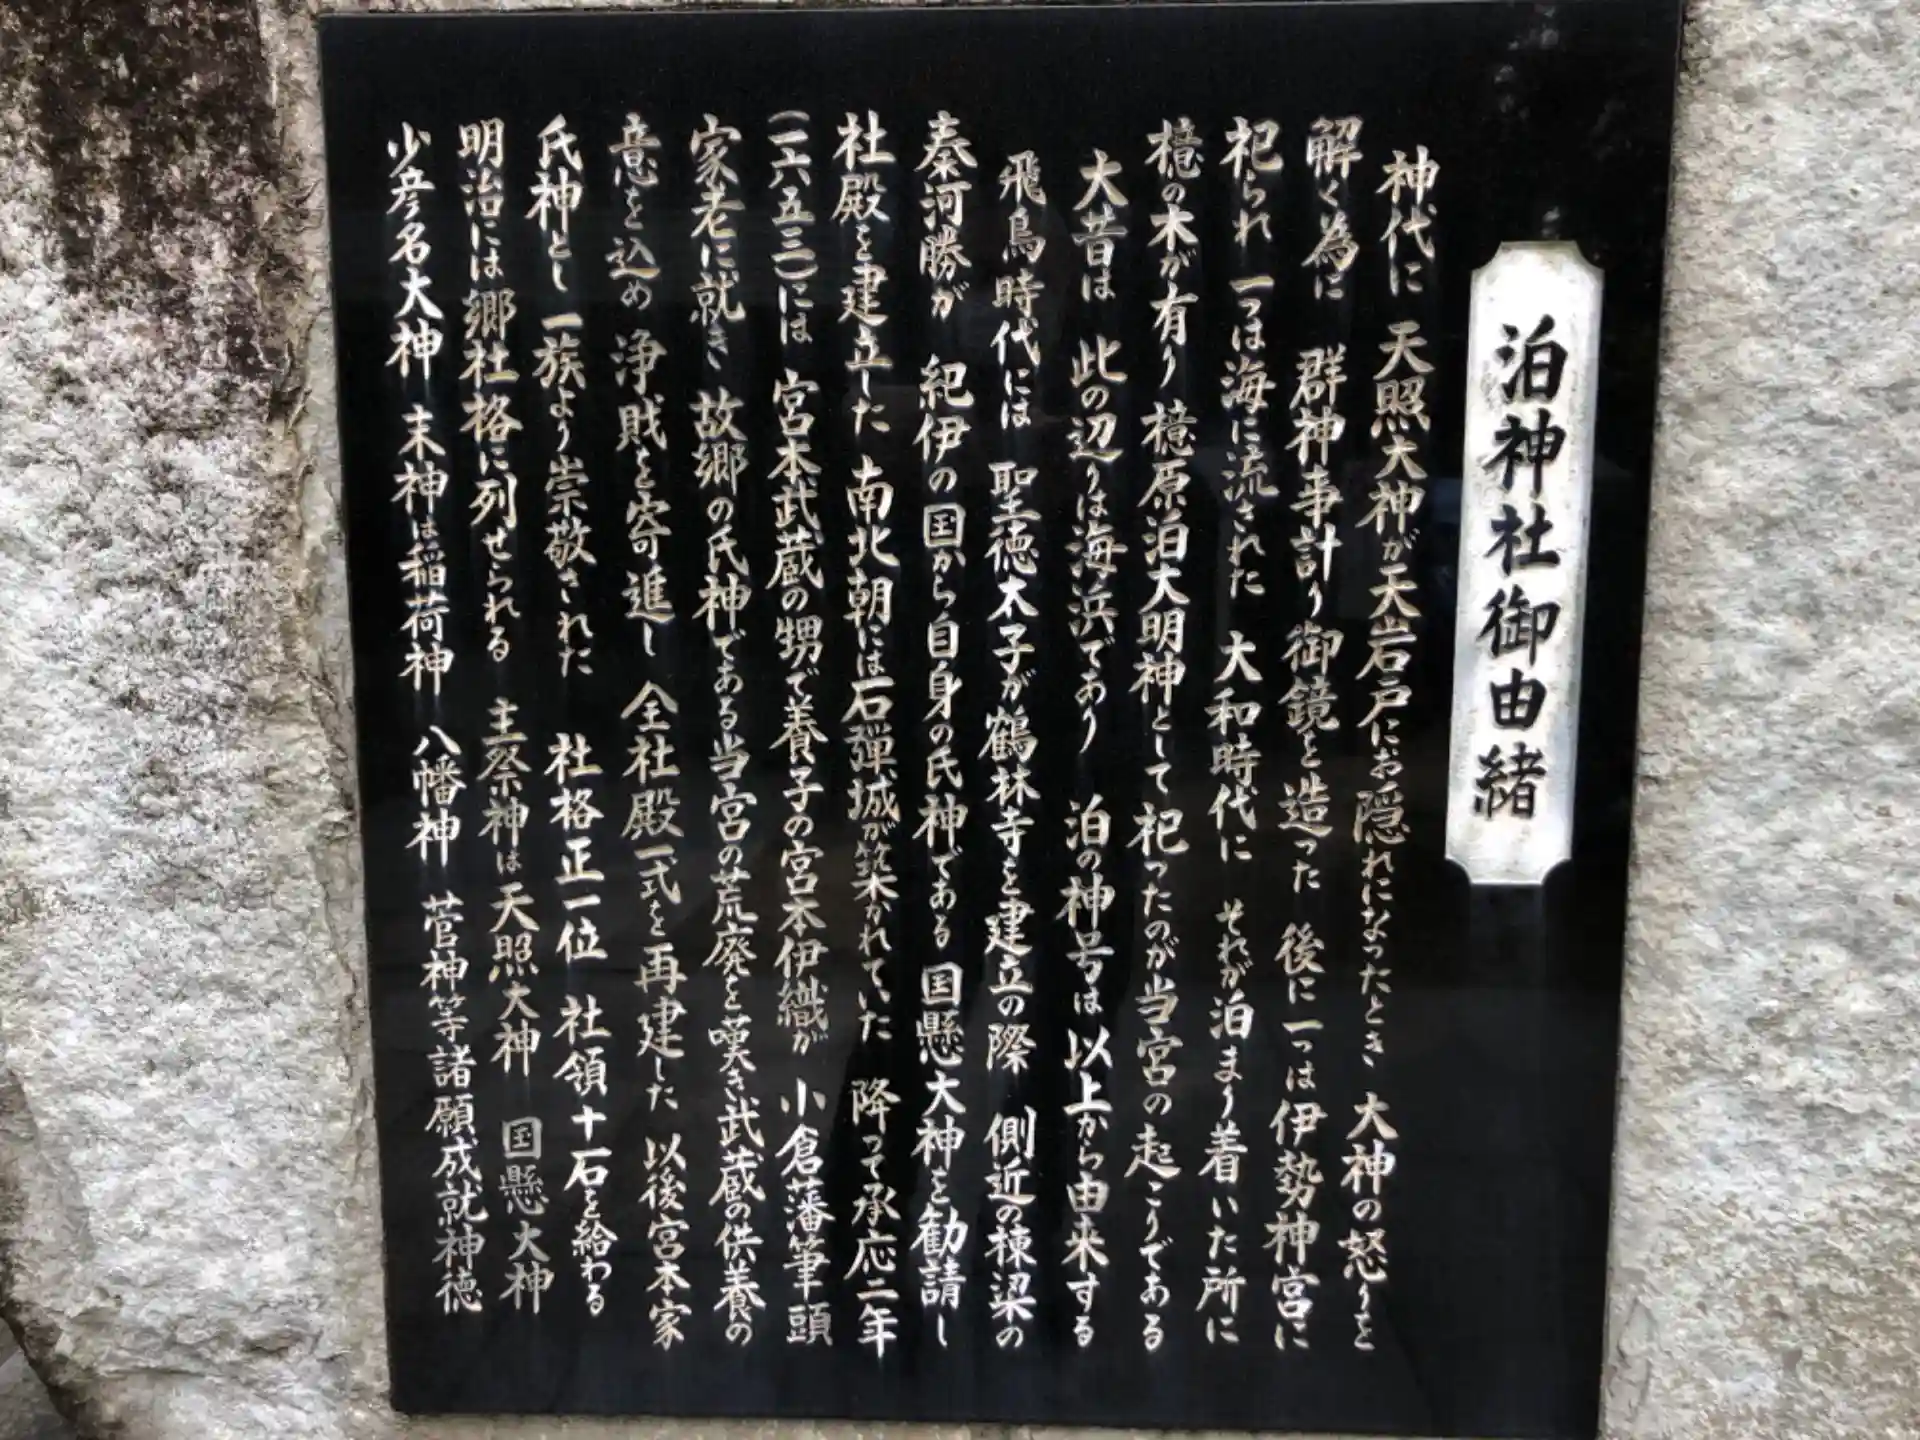 泊神社御由緒
神代に　天照大神が天岩戸にお隠れになったとき　大神の怒りを
解く為に　群神事計り御鏡を造った　後に一つは伊勢神宮に
祀られ　一つは海に流された　大和時代に　それが泊まり着いた所に
檍の木が有り　檍原泊大明神として祀ったのが当宮の起こりである
大昔は　此の辺りは海浜であり　泊の神号は以上から由来する
飛鳥時代には　聖徳太子が鶴林寺を建立の際　側近の棟梁の
秦河勝が　紀伊の国から自身の氏神である　国懸大神を勧請し
社殿を建立した　南北朝には石弾城が築かれていた　降って承応二年
(一六五三)には　宮本武蔵の甥で養子の宮本伊織が　小倉藩筆頭
家老に就き　故郷の氏神である当宮の荒廃を嘆き武蔵の供養の
意を込め　浄財を寄進し　全社殿一式を再建した　以後宮本家
氏神とし一族より崇敬された　社格正一位　社領十石を給わる
明治には郷社格に列せられる　主祭神は天照大神　国懸大神
少彦名大神　末神は稲荷神　八幡神　菅神等諸願成就神徳